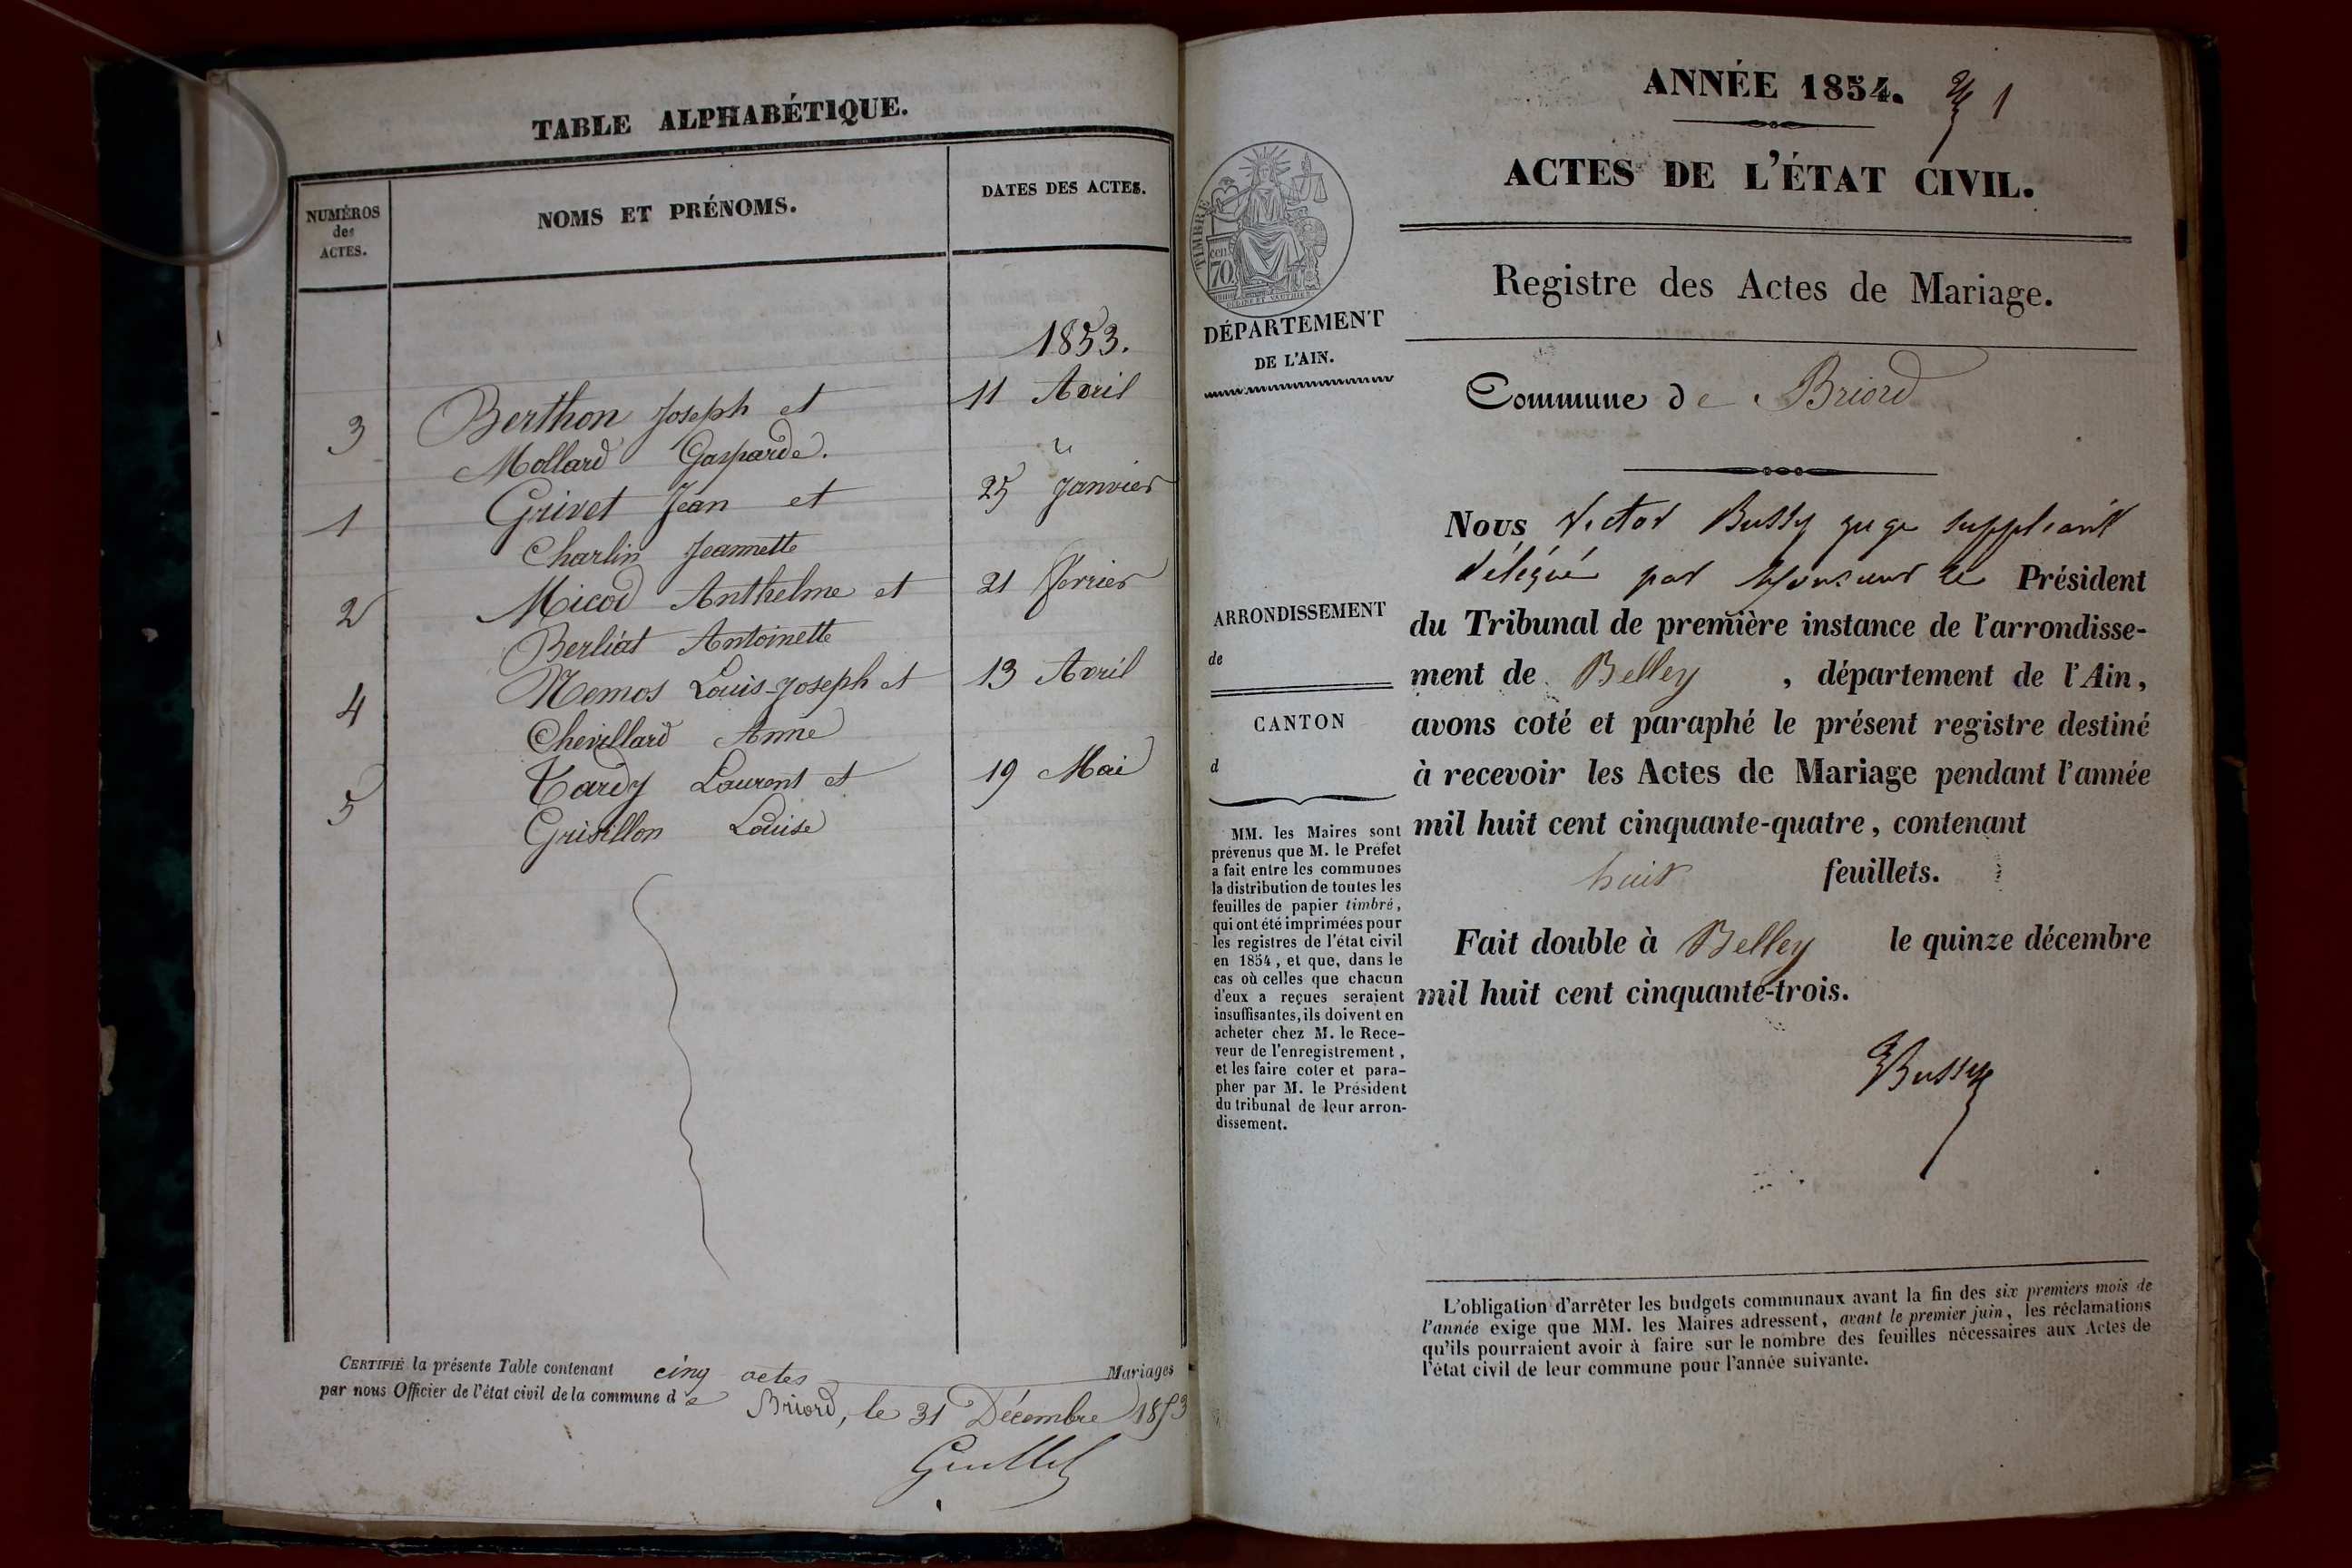 TABLE ALPHABÉTIQUE.
NUMÉROS des ACTES.
NOMS ET PRÉNOMS.
DATES DES ACTES.
1853.
3 Berthon Joseph et 11 Avril
Mollard Gasparde. "
1 Grivet Jean et 25 Janvier
Charlin Jeannette
2 Micod Anthelme et 21 fevrier
Berliat Antoinette
4 Nemos Louis-Joseph et 13 Avril
Chevillard Anne
5 Tardy Laurent et 19 Mai
Grisillon Louise
CERTIFIÉ la présente Table contenant cinq actes Mariages
par nous Officier de l'état civil de la commune de Briord, le 31 Décembre 1853
ANNÉE 1854. 1
ACTES DE L'ÉTAT CIVIL.
Registre des Actes de Mariage.
TIMBRE
70
DÉPARTEMENT
DE L'AIN.
Commune de Briord
Nous Victor Bussy juge suppléant
délégué par Monsieur le Président
du Tribunal de première instance de l'arrondisse-
ment de Belley , département de l'Ain,
avons coté et paraphé le présent registre destiné
à recevoir les Actes de Mariage pendant l'année
mil huit cent cinquante-quatre, contenant
huit feuillets.
Fait double à Belley le quinze décembre
mil huit cent cinquante-trois.
Bussy
ARRONDISSEMENT
de
CANTON
d
MM. les Maires sont
prévenus que M. le Préfet
a fait entre les communes
la distribution de toutes les
feuilles de papier timbré,
qui ont été imprimées pour
les registres de l'état civil
en 1854, et que, dans le
cas où celles que chacun
d'eux a reçues seraient
insuffisantes, ils doivent en
acheter chez M. le Rece-
veur de l'enregistrement,
et les faire coter et para-
pher par M. le Président
du tribunal de leur arron-
dissement.
L'obligation d'arrêter les budgets communaux avant la fin des six premiers mois de
l'année exige que MM. les Maires adressent, avant le premier juin, les réclamations
qu'ils pourraient avoir à faire sur le nombre des feuilles nécessaires aux Actes de
l'état civil de leur commune pour l'année suivante.